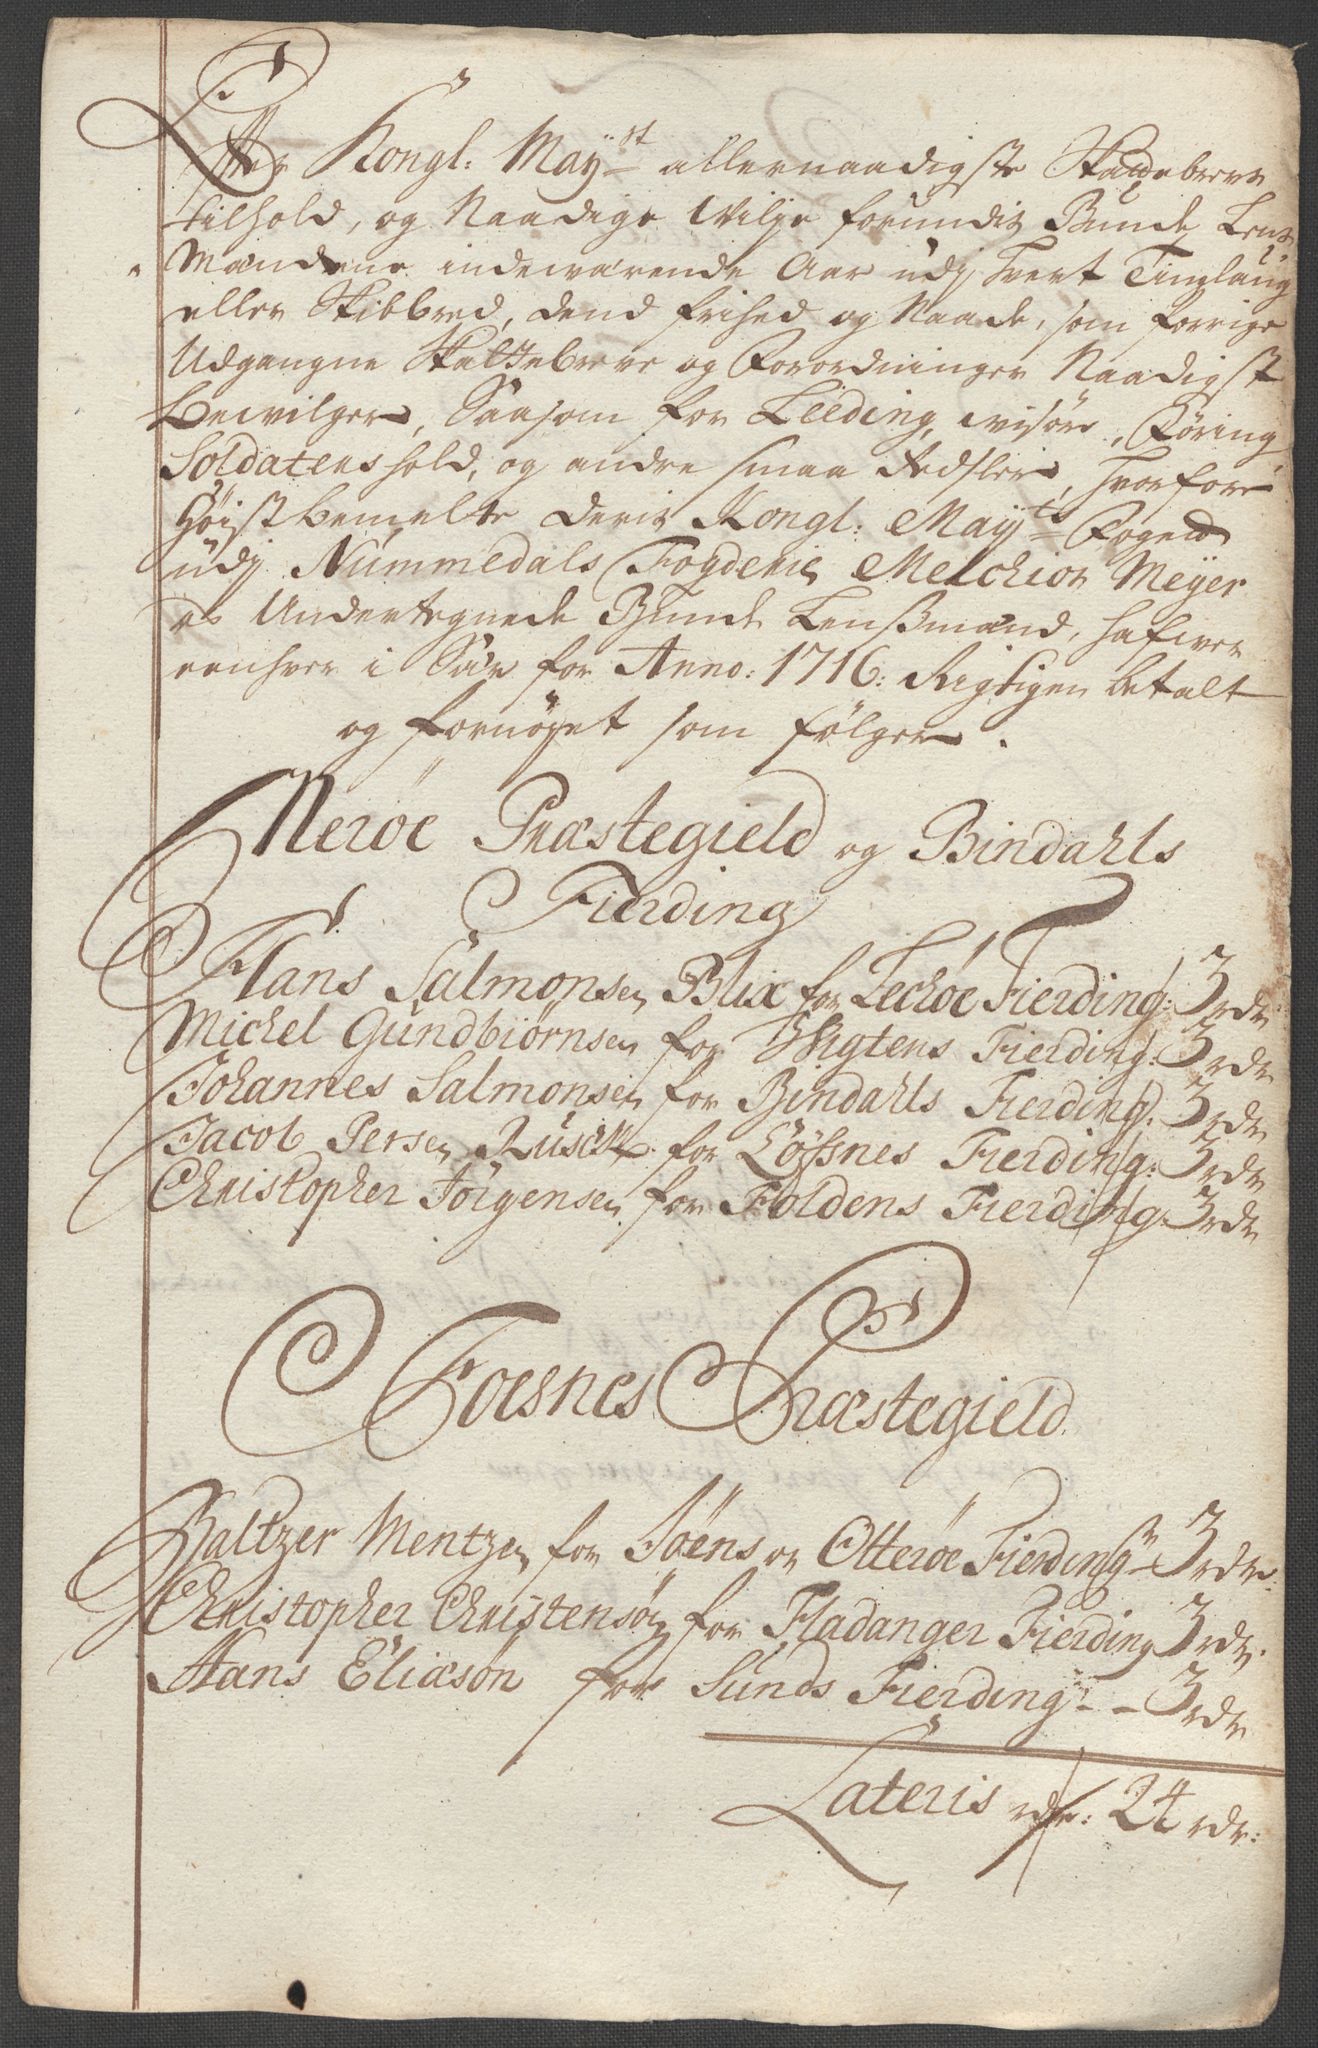 Efter Kongl: May:st allernaadigste Skattebrevs
tilhold, og Naadige Vilje forundis Bunde Lens
Mændene indeværende Aar udj hvert Tinglaug
eller Skibbred, dend frihed og Naade, som forrige
Udgangne Skattebreve og Forordninger Naadigst
bevilger, Saasom for Leeding, Visøre, Føring,
Soldatenshold, og andre smaa Redsler, hvorfore
Høistbemelte Deris Kongl: Mayts Foged
udj Nummedals Fogderie Melchior Meyer
os Undertegnede Bunde Lensmænd, hafver
eenhver i Sær for Anno: 1716: Rigtigen betalt
og fornøyet som følger.
Nerøe Præstegield og Bindahls
Fierding
Hans Salmonsen Blix for Lechøe Fierding: 3 rdr
Michel Gundbiørnsen for Wigtens Fierding: 3 rdr
Johannes Salmonsen for Bindahls Fierding: 3 rdr
Jacob Persen Rusch for Løssnes Fierding: 3 rdr
Christopher Jørgensen for Foldens Fierding: 3 rdr
Foesnes Præstegield
Baltzer Mentzen for Søens og Otterøe Fierding 3 rdr
Christopher Christensøn for Fladanger Fierding 3 rdr.
Hans Eliasøn for Sunds Fierding - - 3 rdr
Lateris rdr: 24 rdr: